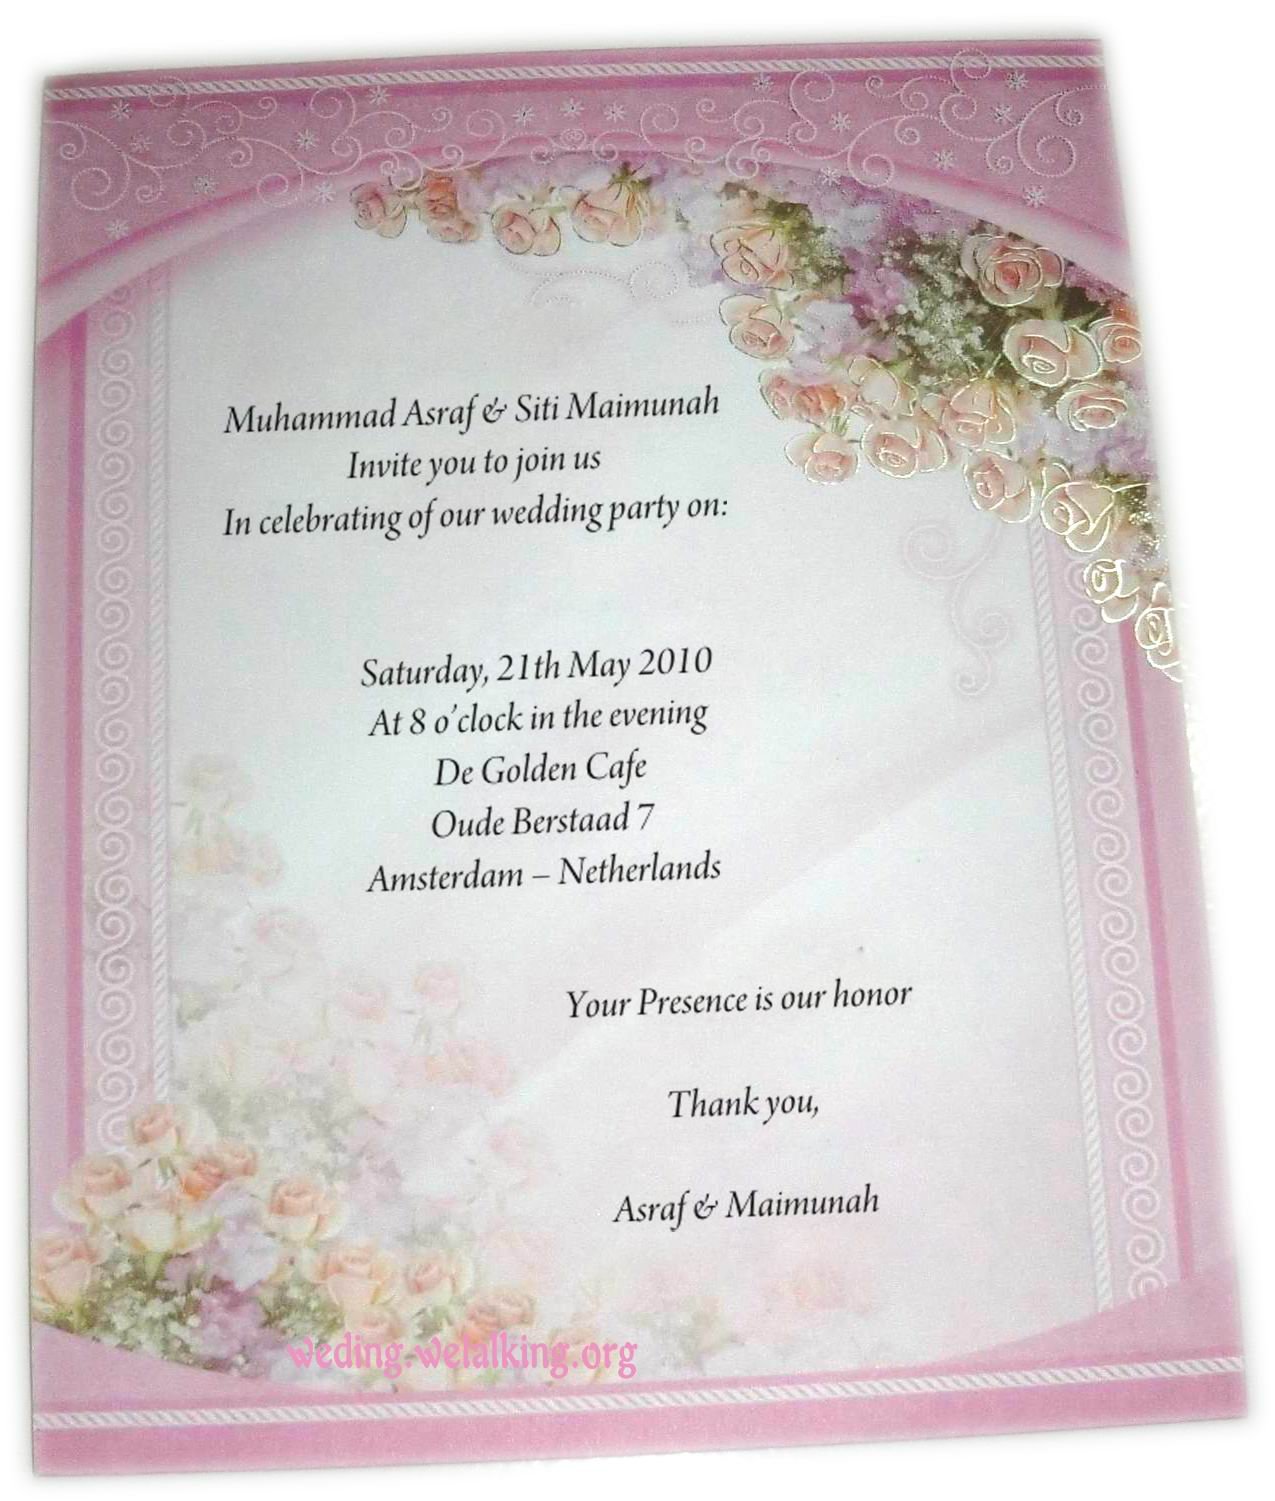 Muhammad Asraf & Siti Maimunah
Invite you to join us
In celebrating of our wedding party on:
Saturday, 21th May 2010
At 8 o'clock in the evening
De Golden Cafe
Oude Berstaad 7
Amsterdam – Netherlands
Your Presence is our honor
Thank you,
Asraf & Maimunah
weding.welalking.org